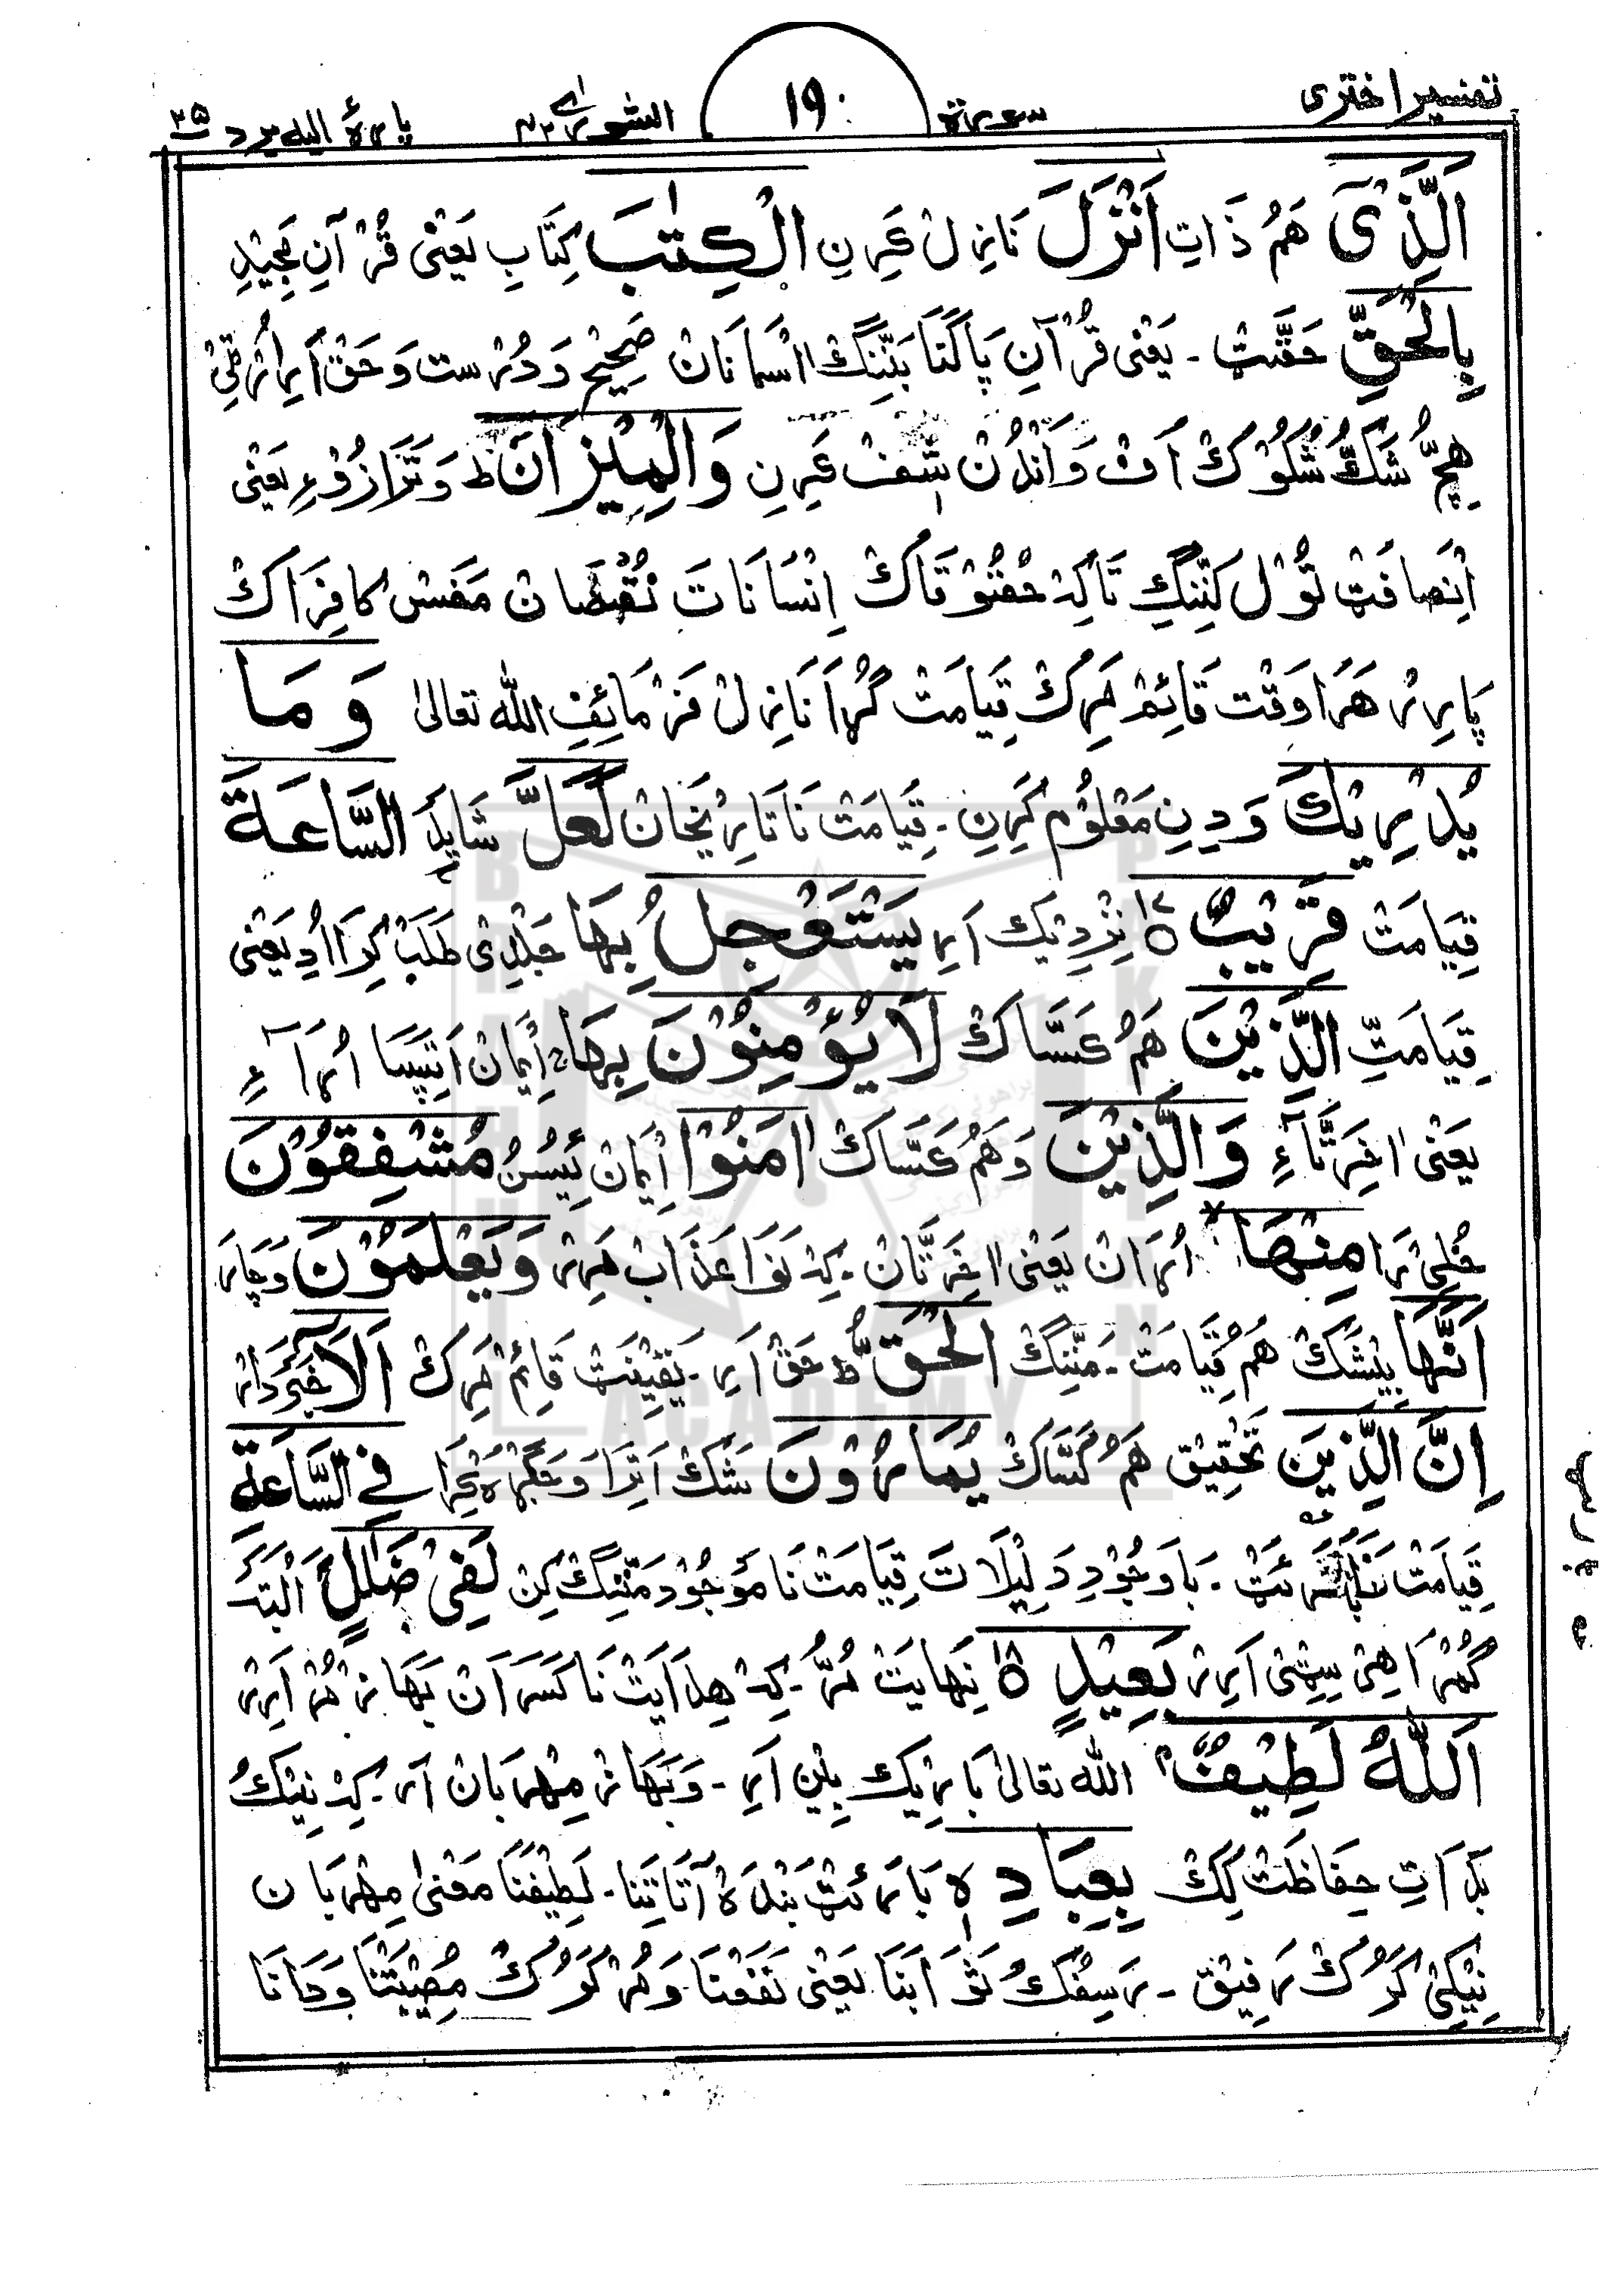 تفسیر اختری
سورة
۱۹۰
الشورٰی ۴۲
پارۂ الیه یرد ۲۵
اَلَّذِیْٓ هَمُ ذَاتِ اَنْزَلَ نَازِل کَرِنِ الْكِتٰبَ کِتَابِ یَعْنِیْ قُرْآنِ مَجِیْدِ
بِالْحَقِّ حَقَّتْ ۔ یَعْنِی قُرْآنِ پَاکَنَا بَنِّنِگ اَسْمَانَانْ صَحِیْح وَ دُرُسْت وَ حَقْ اَرِ
هِچُّ شَکُّ شُکُوْک اَفْ وَ اَنْدُنْ شَفْ کَرِنِ وَالْمِیْزَانَ ط وَ تَرَازُوْءِ یَعْنِی
اِنْصَافَتْ تُوْل کَنِّنِگِ تَاکِدْ حُقُوْقَاکْ اِنْسَانَاتَ نُقْصَان مَفَسْ کَافِرَاکْ
پَارِرْ هَرَا وَقْت قَائِمْ مَرِکْ قِیَامَتْ گُڑَا نَازِل فَرْمَائِفِ اللّٰه تعالیٰ وَمَا
یُدْرِیْكَ وَ دِنِ مَعْلُوْم کَرِنِ ۔ قِیَامَتْ نَا تَارِیْخَانْ لَعَلَّ شَایِدَ السَّاعَةَ
قِیَامَتْ قَرِیْبٌ ۱۷ نَزْدِیْك اَرِ یَسْتَعْجِلُ بِهَا جَلْدِیْ طَلَبْ کِرَا اُدِ یَعْنِی
قِیَامَتِّ الَّذِیْنَ هَمُ کَسَّاکْ لَا یُؤْمِنُوْنَ بِهَا ج اِیْمَانْ اَتِپَسَا اُڑَآءِ
یَعْنِی اٰخِرَتَّآءِ وَالَّذِیْنَ وَ هَمُ کَسَّاکْ اٰمَنُوْا اِیْمَانْ ئِیْسُنُ مُشْفِقُوْنَ
خُلِیْرَا مِنْهَا اُڑَانْ یَعْنِی اٰخِرَتَّانْ ۔ کِدْ نَوَا عَذَابْ مَرِرْ وَیَعْلَمُوْنَ وَ چَارَ
اَنَّهَا بِیْشَكْ هَمُ قِیَامَتْ ۔ مَنِّنِگْ الْحَقُّ ط حَقْ اَرِ ۔ یَقِیْنَتْ قَائِمْ مَرِکْ اَلَآ خَبَرْدَارْ
اِنَّ الَّذِیْنَ تَحْقِیْق هَمُ کَسَّاکْ یُمَارُوْنَ شَكْ اَتِرَا وَ جَگْڑَه کَرَا فِی السَّاعَةِ
قِیَامَتْ نَا بَارَئَتْ ۔ بَاوَجُوْدِ دَلِیْلَاتَ قِیَامَتْ نَا مَوْجُوْد مَنِّنِگ کِنْ لَفِیْ ضَلٰلٍ اَلْبَتَه
گُمْرَاهِیْ سِٹِی اَرِرْ بَعِیْدٍ ۱۸ نِهَایَتْ مُرُّ ۔ کِدْ هِدَایَتْ نَا کَسَرَانْ بَهَازْ مُرْ اَرِرْ
اَللّٰهُ لَطِیْفٌۢ اللّٰه تعالیٰ بَارِیْك بِیْن اَرِ ۔ وَ بَهَازْ مِهْرَبَانْ اَرِ ۔ کِدْ نِیْکُ
بَدَاتِ حِفَاظَتْ کِكْ بِعِبَادِهٖ بَارَئَتْ بَنْدَه آتَاتَنَا ۔ لَطِیْفَنَا مَعْنیٰ مِهْرَبَان
نِیْکِیْ کَرُوْکْ رَفِیْق ۔ رَسِفُکْ ثَوَابَنَا یَعْنِی نَفَعْنَا وَ مُرْ کَرُوْکْ مُصِیْبَتْنَا وَ حَانَا
BRAHUI
ACADEMY